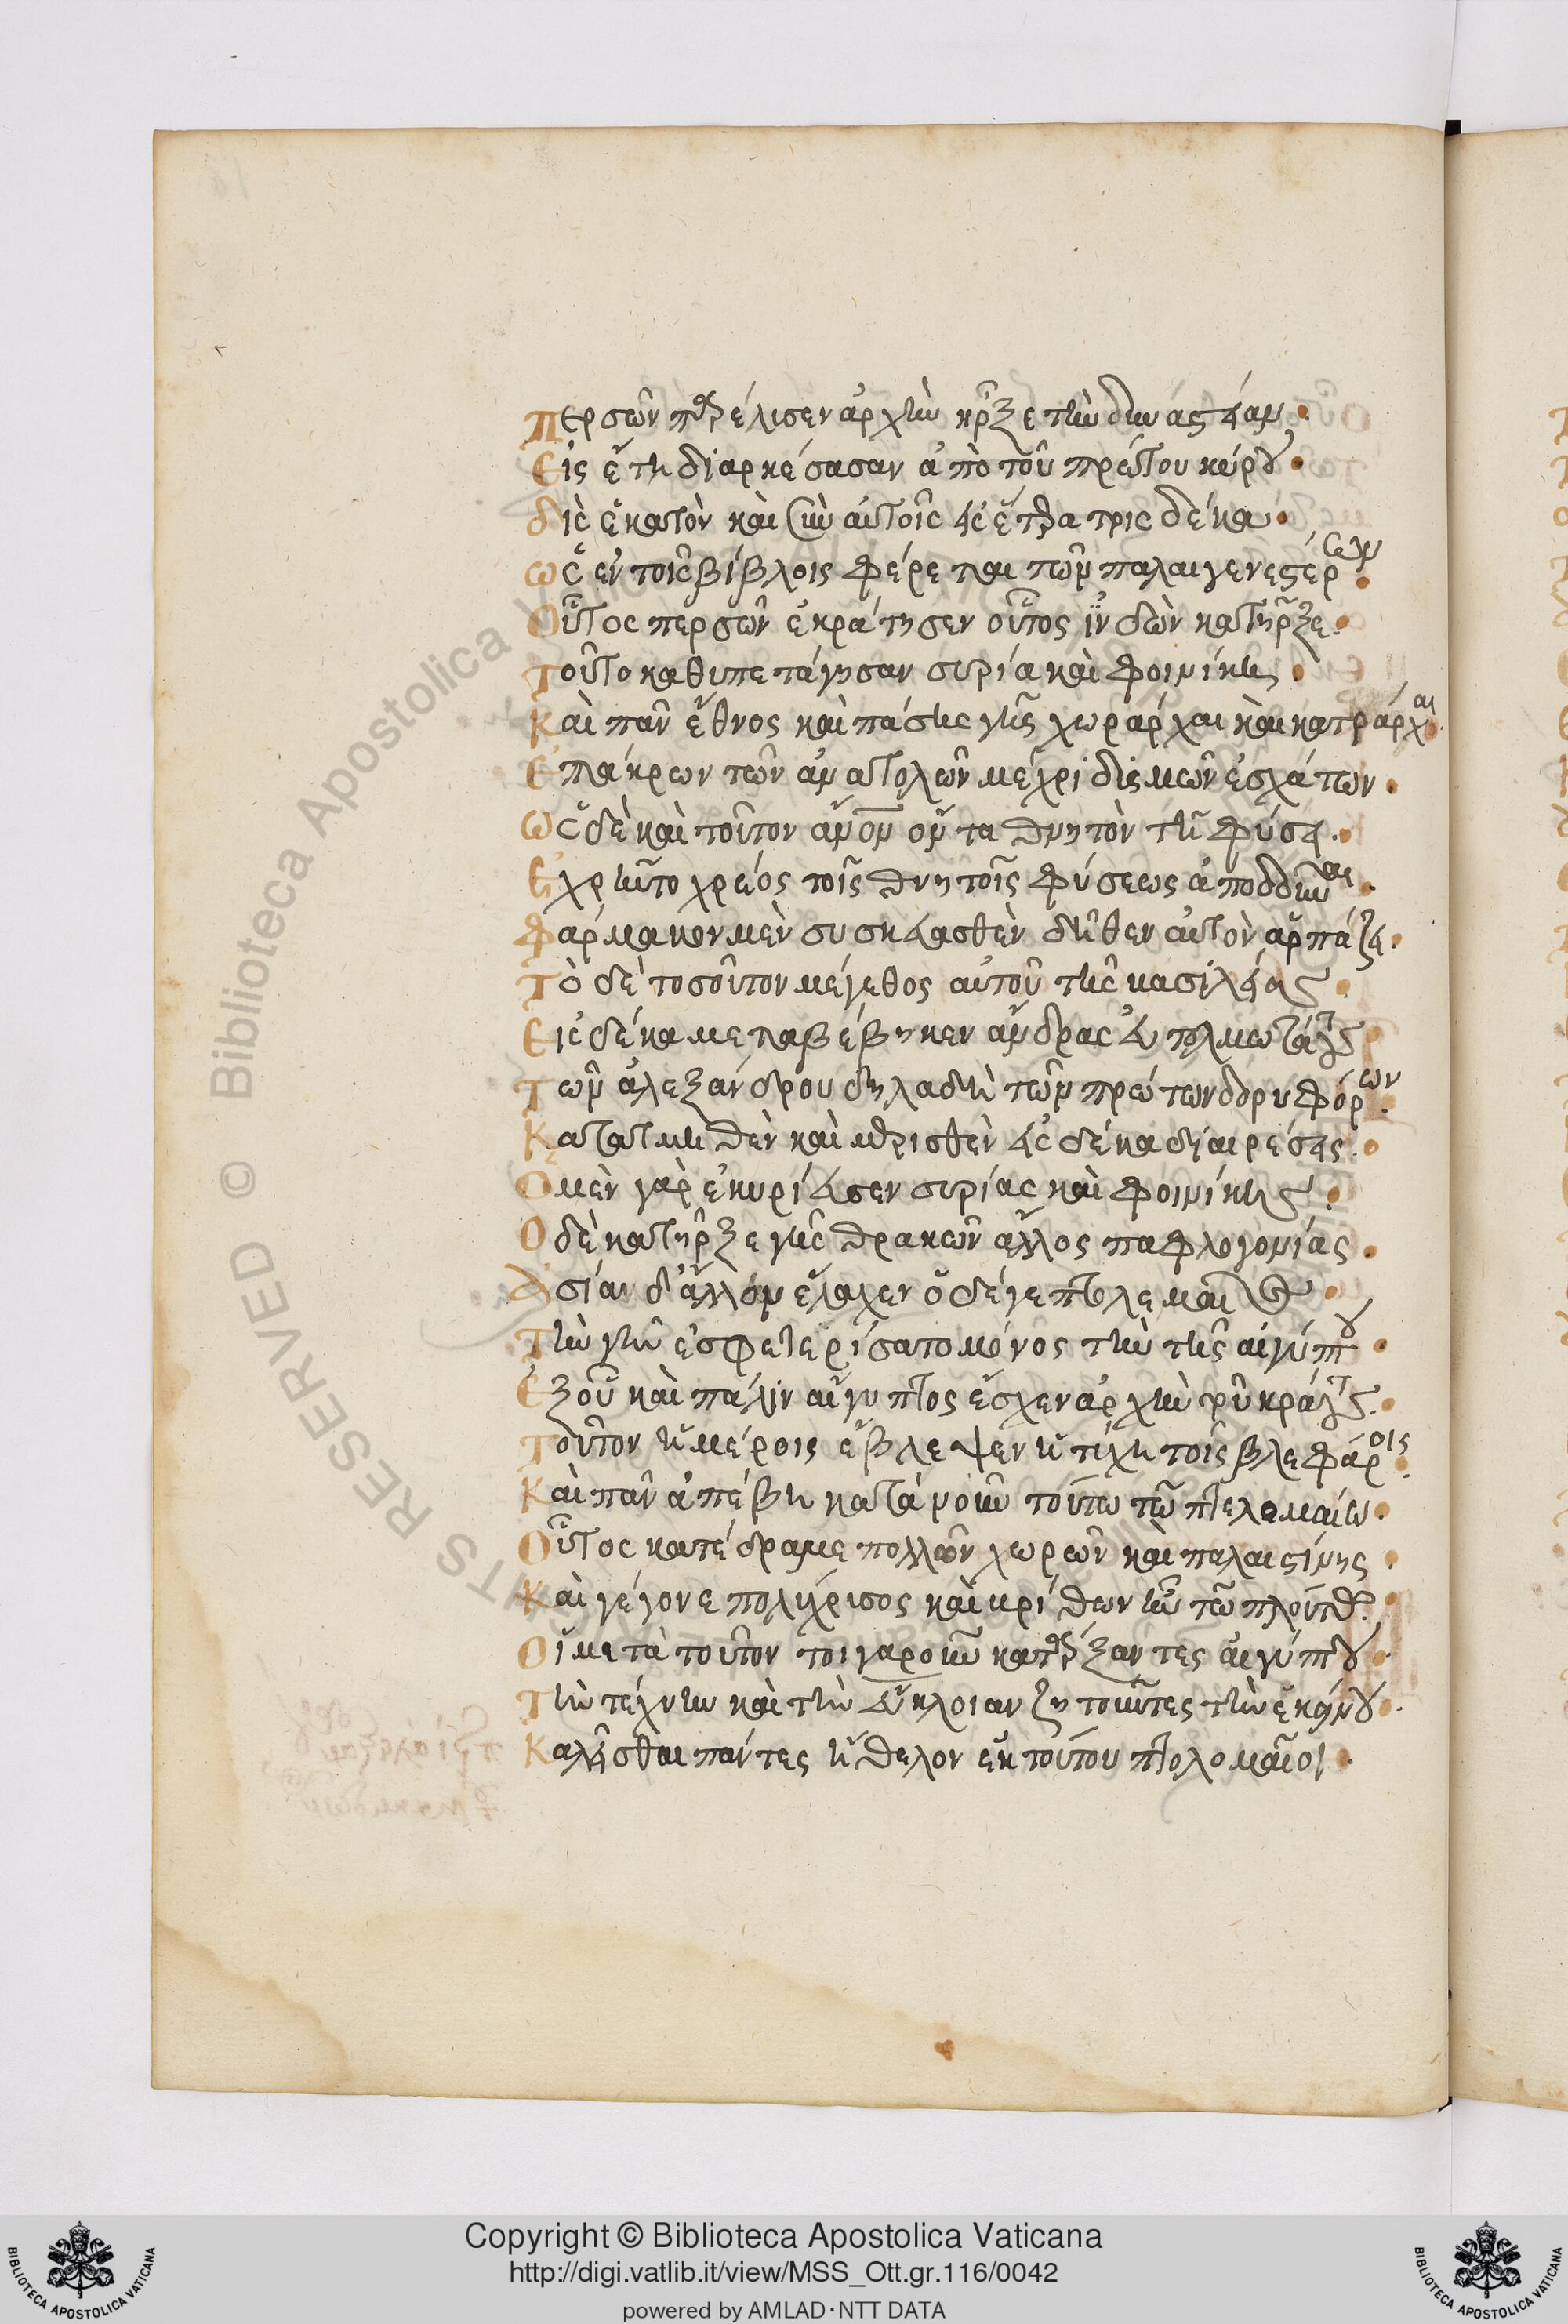 Περσῶν παρέλυσεν ἀρχὴν κῆρξε τὴν δυναστείαν.
Εἰς ἔτη διαρκέσασαν ἀπὸ τοῦ πρώτου κύρου.
δὶς ἑκατὸν καὶ σὺν αὐτοῖς εἰς ἕτερα τρὶς δέκα.
ὡς ἐν τοῖς βίβλοις φέρεται τῶν παλαιγενεστέρων.
Οὗτος περσῶν ἐκράτησεν οὗτος ἰνδῶν κατῆρξε.
Τούτο καθυπετάγησαν συρία καὶ φοινίκη.
Καὶ πᾶν ἔθνος καὶ πάσης γῆς χωράρχαι καὶ κατράρχαι.
Ἐπάκρων τῶν ἀνατολῶν μέχρι δισμῶν ἐσχάτων.
ὡς δὲ καὶ τοῦτον ἄνον ὄντα θνητὸν τῇ φύσει.
Ἐχρῆτο χρέος τοῖς θνητοῖς φύσεως ἀποδοῦναι.
Φάρμακον μὲν συσκευασθὲν δῆθεν αὐτὸν ἁρπάζει.
Τὸ δὲ τοσοῦτον μέγεθος αὐτοῦ τῆς βασιλείας.
Εἰς δέκα μεταβέβηκεν ἄνδρας εὐτολμωτάτους.
Τῶν ἀλεξάνδρου δηλαδὴ τῶν πρώτων δορυφόρων.
Κατατμηθὲν καὶ μερισθὲν εἰς δέκα διαιρέσεις.
Ὁ μὲν γὰρ ἐκυρίευσεν συρίας καὶ φοινίκης.
Ὁ δὲ κατῆρξε γῆς θρακῶν ἄλλος παφλαγονίας.
Ἀσίαν δ' ἄλλον ἔλαχεν ὁ δέ γε πτολεμαῖος.
Τὴν γῆν ἐσφετερίσατο μόνος τὴν τῆς αἰγύπτου.
Ἐξ οὗ καὶ πάλιν αἴγυπτος ἔσχεν ἀρχὴν τοῦ κράτους.
Τοῦτον ἡμέροις ἔβλεψεν ἡ τύχη τοῖς βλεφάροις.
Καὶ πᾶν ἀπέβη κατὰ νοῦν τούτω τῶ πτελομαίω.
Οὗτος κατέδραμε πολλῶν χωρῶν καὶ παλαιστίνης.
Καὶ γέγονε πολύχρισος καὶ βρίθων ἦν τῶ πλούτω.
Οἱ μετὰ τοῦτον τοιγαροῦν κατάρξαντες αἰγύπτου.
Τὴν τέχνην καὶ τὴν εὔκλοιαν ζητοῦντες τὴν ἐκείνου.
Καλεῖσθαι πάντες ἤθελον ἐκ τούτου πτολομαῖοι.
Copyright © Biblioteca Apostolica Vaticana
http://digi.vatlib.it/view/MSS_Ott.gr.116/0042
powered by AMLAD·NTT DATA